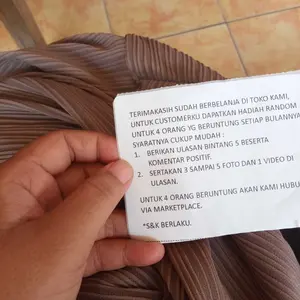 TERIMAKASIH SUDAH BERBELANJA DI TOKO KAMI,
UNTUK CUSTOMERKU DAPATKAN HADIAH RANDOM
UNTUK 4 ORANG YG BERUNTUNG SETIAP BULANNYA
SYARATNYA CUKUP MUDAH :
1. BERIKAN ULASAN BINTANG 5 BESERTA
KOMENTAR POSITIF.
2. SERTAKAN 3 SAMPAI 5 FOTO DAN 1 VIDEO DI
ULASAN.
UNTUK 4 ORANG BERUNTUNG AKAN KAMI HUBU
VIA MARKETPLACE.
*S&K BERLAKU.